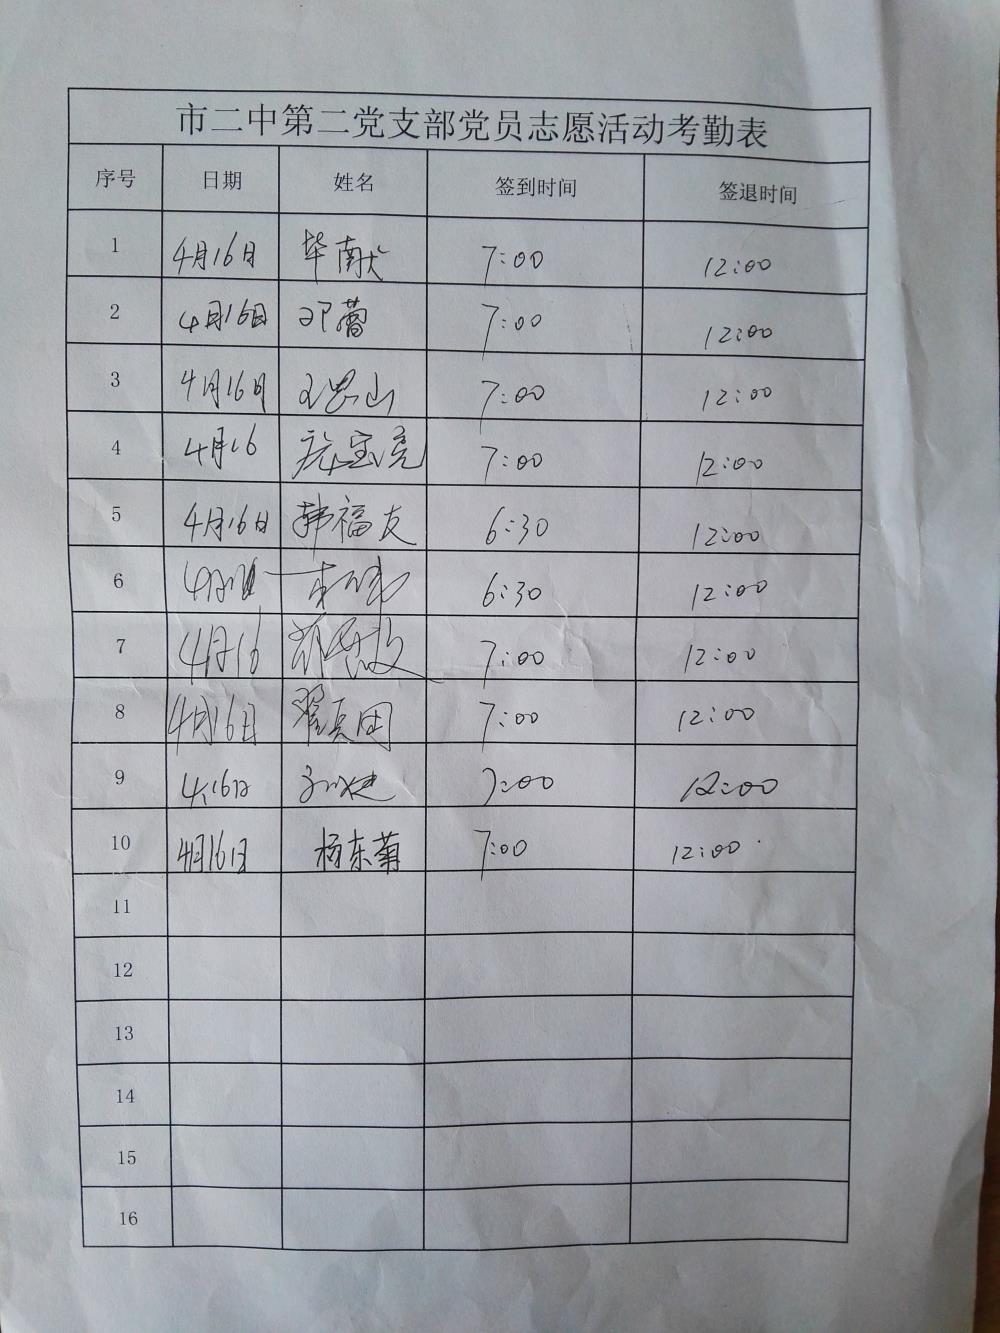 市二中第二党支部党员志愿活动考勤表
序号 日期 姓名 签到时间 签退时间
1 4月16日 毕献 7:00 12:00
2 4月16日 邓蕾 7:00 12:00
3 4月16日 王思山 7:00 12:00
4 4月16 庞宝亮 7:00 12:00
5 4月16日 韩福友 6:30 12:00
6 6:30 12:00
7 4月16 7:00 12:00
8 4月16日 翟兵团 7:00 12:00
9 4.16日 7:00 12:00
10 4月16日 杨东菊 7:00 12:00
11
12
13
14
15
16